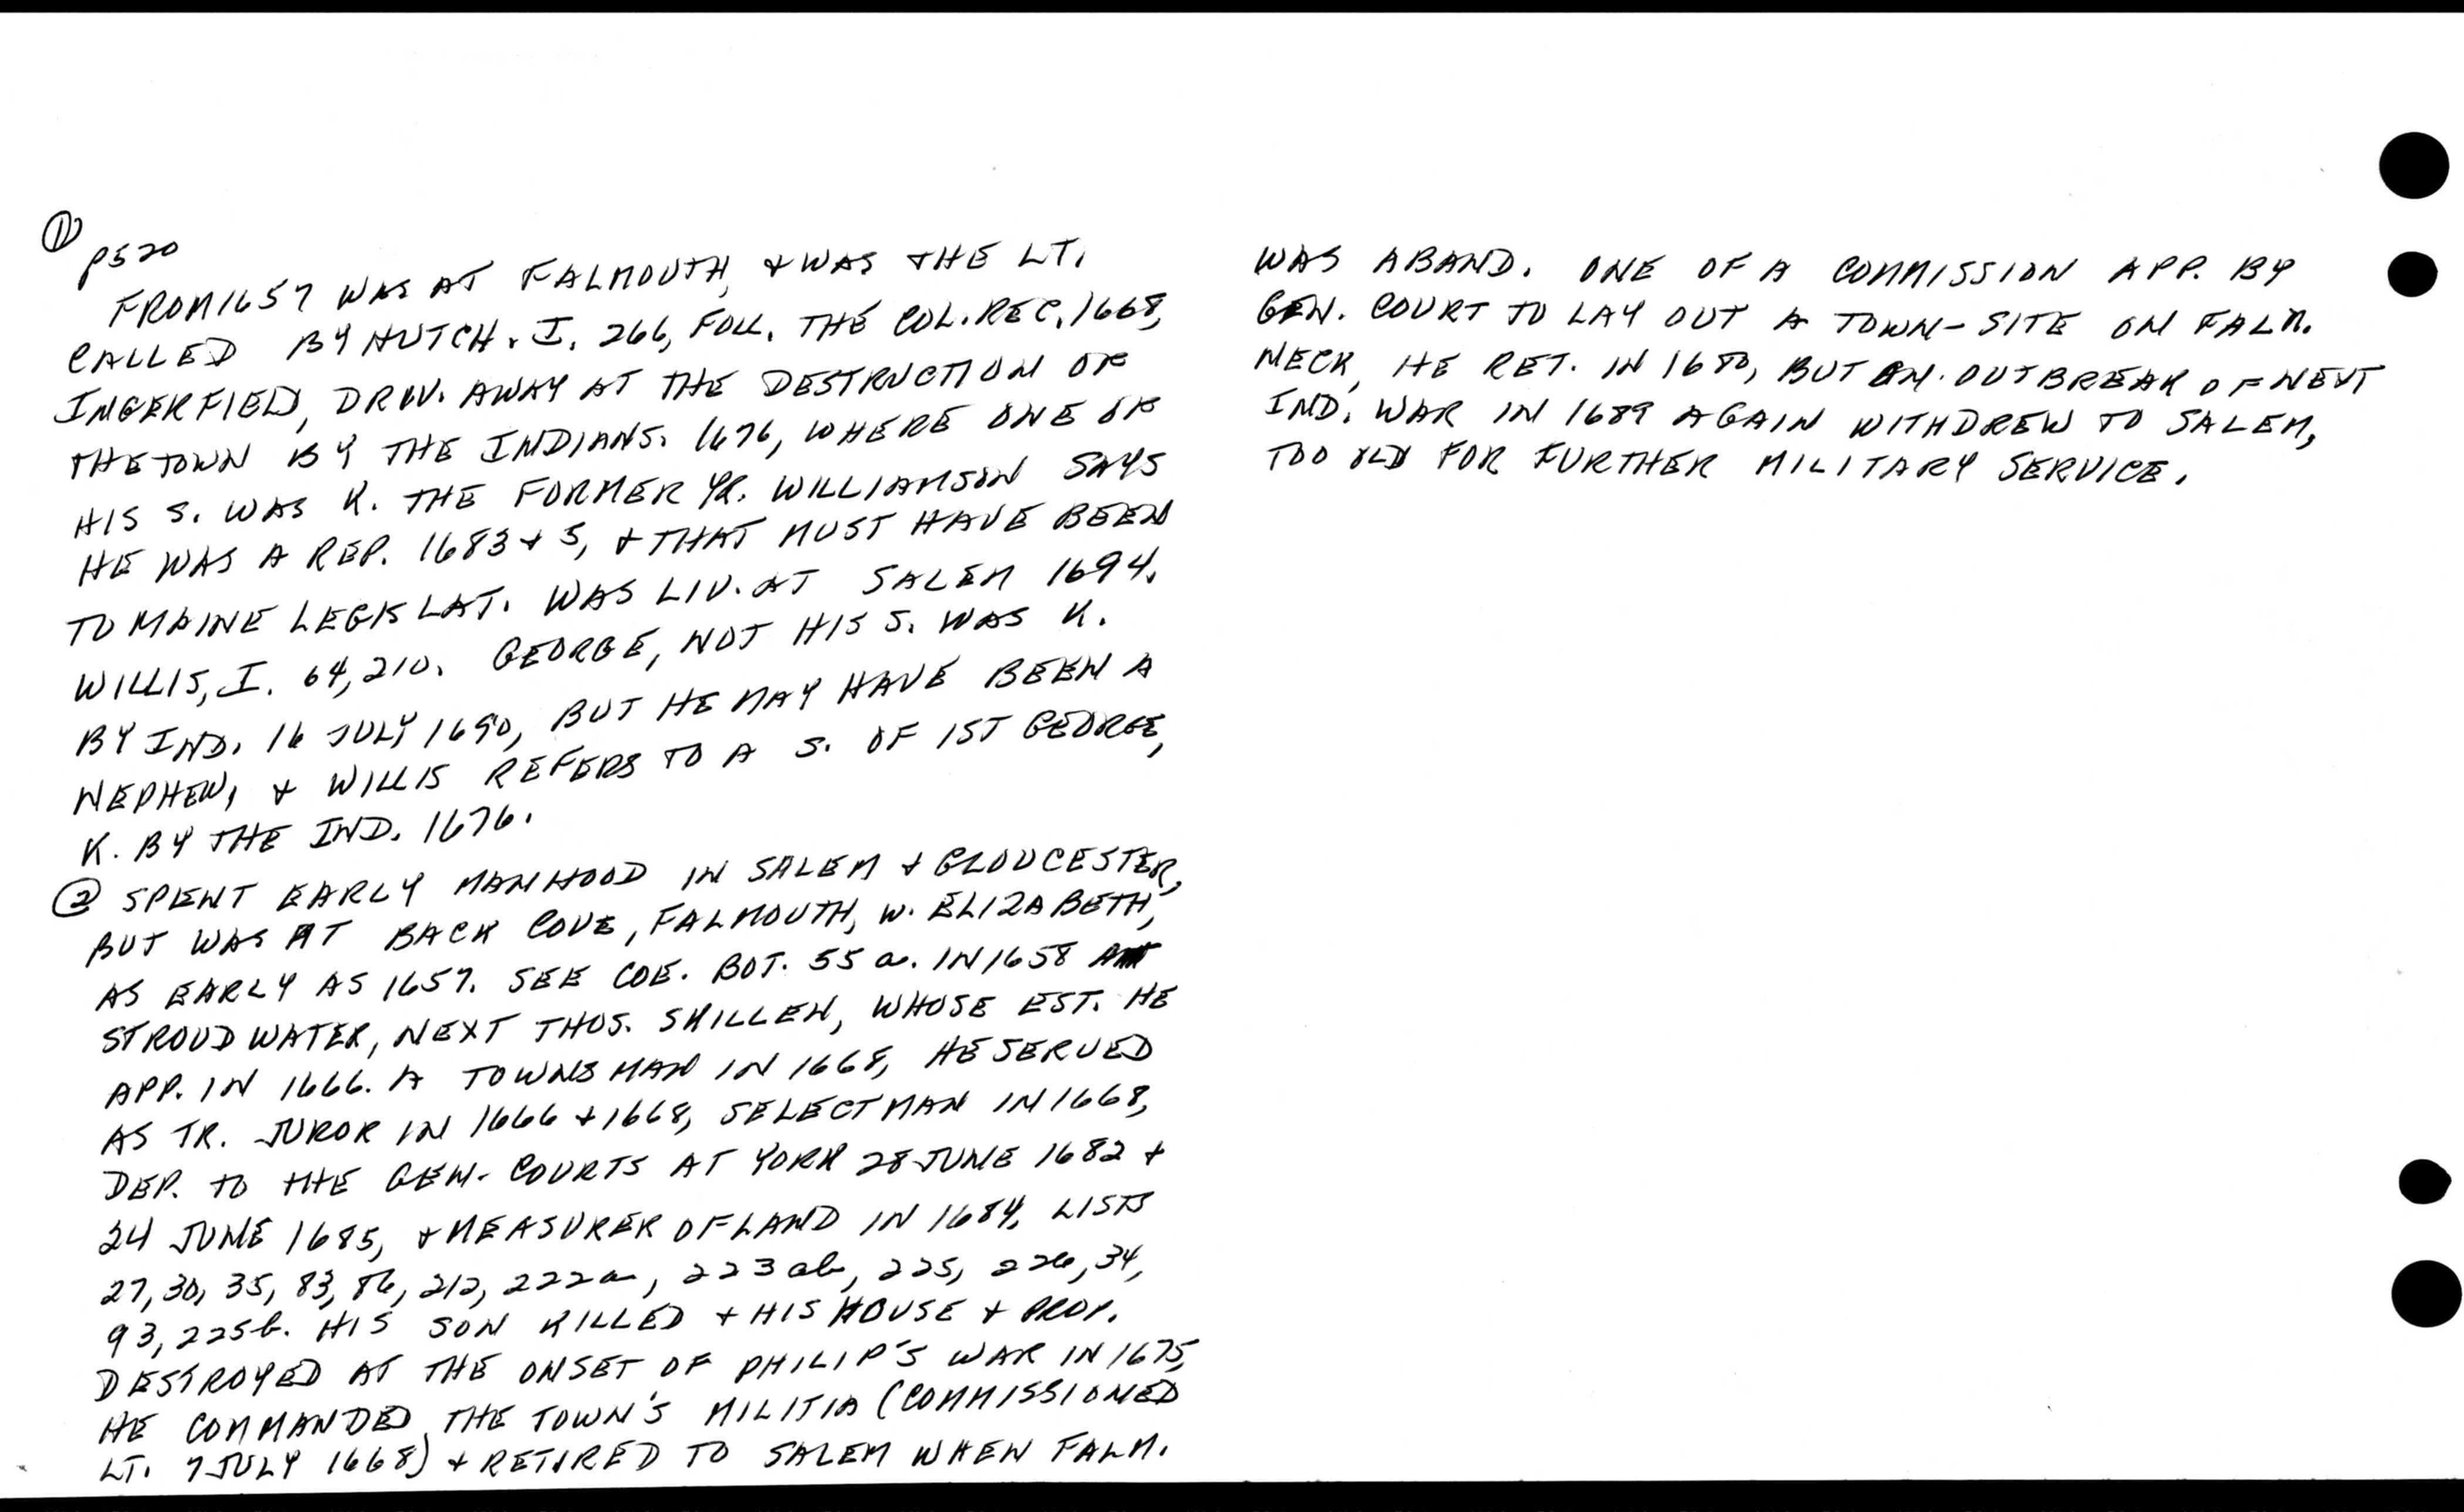 ① P520
FROM 1657 WAS AT FALMOUTH, & WAS THE LT.
CALLED BY HUTCH. I. 266, FOLL. THE COL. REC. 1668,
INGERFIELD, DRIV. AWAY AT THE DESTRUCTION OF
THE TOWN BY THE INDIANS. 1676, WHERE ONE OF
HIS S. WAS K. THE FORMER YR. WILLIAMSON SAYS
HE WAS A REP. 1683 & 5, & THAT MUST HAVE BEEN
TO MAINE LEGISLAT. WAS LIV. AT SALEM 1694.
WILLIS, I. 64, 210. GEORGE, NOT HIS S. WAS K.
BY IND. 16 JULY 1690, BUT HE MAY HAVE BEEN A
NEPHEW, & WILLIS REFERS TO A S. OF 1ST GEORGE,
K. BY THE IND. 1676.
② SPENT EARLY MANHOOD IN SALEM & GLOUCESTER,
BUT WAS AT BACK COVE, FALMOUTH, W. ELIZABETH,
AS EARLY AS 1657. SEE COE. BOT. 55 a. IN 1658
STROUDWATER, NEXT THOS. SKILLEN, WHOSE EST. HE
APP. IN 1666. A TOWNSMAN IN 1668, HE SERVED
AS TR. JUROR IN 1666 & 1668, SELECTMAN IN 1668,
DEP. TO THE GEN. COURTS AT YORK 28 JUNE 1682 &
24 JUNE 1685, & MEASURER OF LAND IN 1684. LISTS
27, 30, 35, 83, 86, 212, 222a, 223ab, 225, 226, 34,
93, 225b. HIS SON KILLED & HIS HOUSE & PROP.
DESTROYED AT THE ONSET OF PHILIP'S WAR IN 1675,
HE COMMANDED THE TOWN'S MILITIA (COMMISSIONED
LT. 7 JULY 1668) & RETIRED TO SALEM WHEN FALM.
WAS ABAND. ONE OF A COMMISSION APP. BY
GEN. COURT TO LAY OUT A TOWN-SITE ON FALM.
NECK, HE RET. IN 1680, BUT OUTBREAK OF NEXT
IND. WAR IN 1689 AGAIN WITHDREW TO SALEM,
TOO OLD FOR FURTHER MILITARY SERVICE.